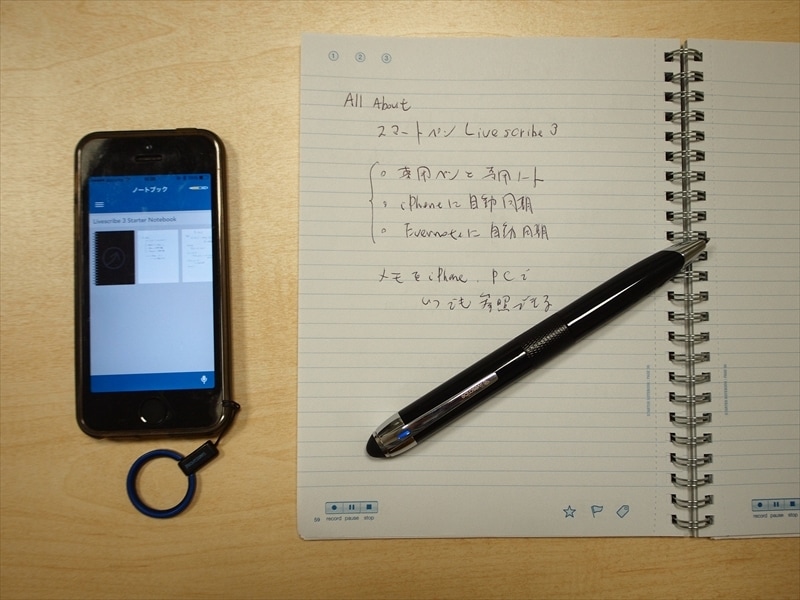 ノートブック
Livescribe 3 Starter Notebook
① ② ③
All About
スマートペン Livescribe 3
○ 専用ペンと専用ノート
○ iPhoneに自動同期
○ Evernoteに自動同期
メモをiPhone、PCで
いつでも参照できる
record pause stop
record pause stop